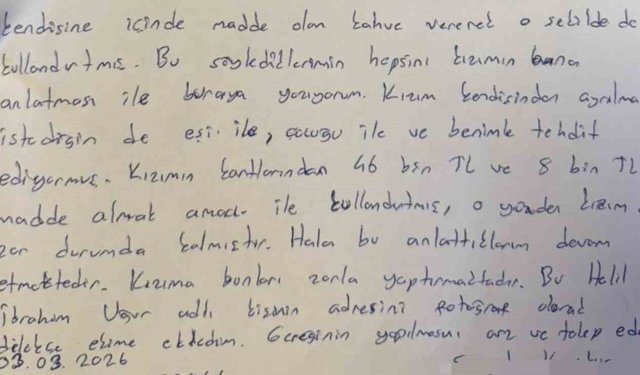 kendisine içinde madde olan kahve vererek o şekilde de
kullandırtmış. Bu söylediklerimin hepsini kızımın bana
anlatması ile buraya yazıyorum. Kızım kendisinden ayrılma
istediğin de eşi ile, çocuğu ile ve benimle tehdit
ediyormuş. Kızımın kartlarından 46 bin TL ve 8 bin TL
madde almak amacı ile kullandırtmış, o yüzden kızım
zor durumda kalmıştır. Hala bu anlattıklarım devam
etmektedir. Kızıma bunları zorla yaptırmaktadır. Bu Halil
İbrahim Uğur adlı kişinin adresini fotoğraf olarak
dilekçe ekime ekledim. Gereğinin yapılmasını arz ve talep ed
03.03.2026